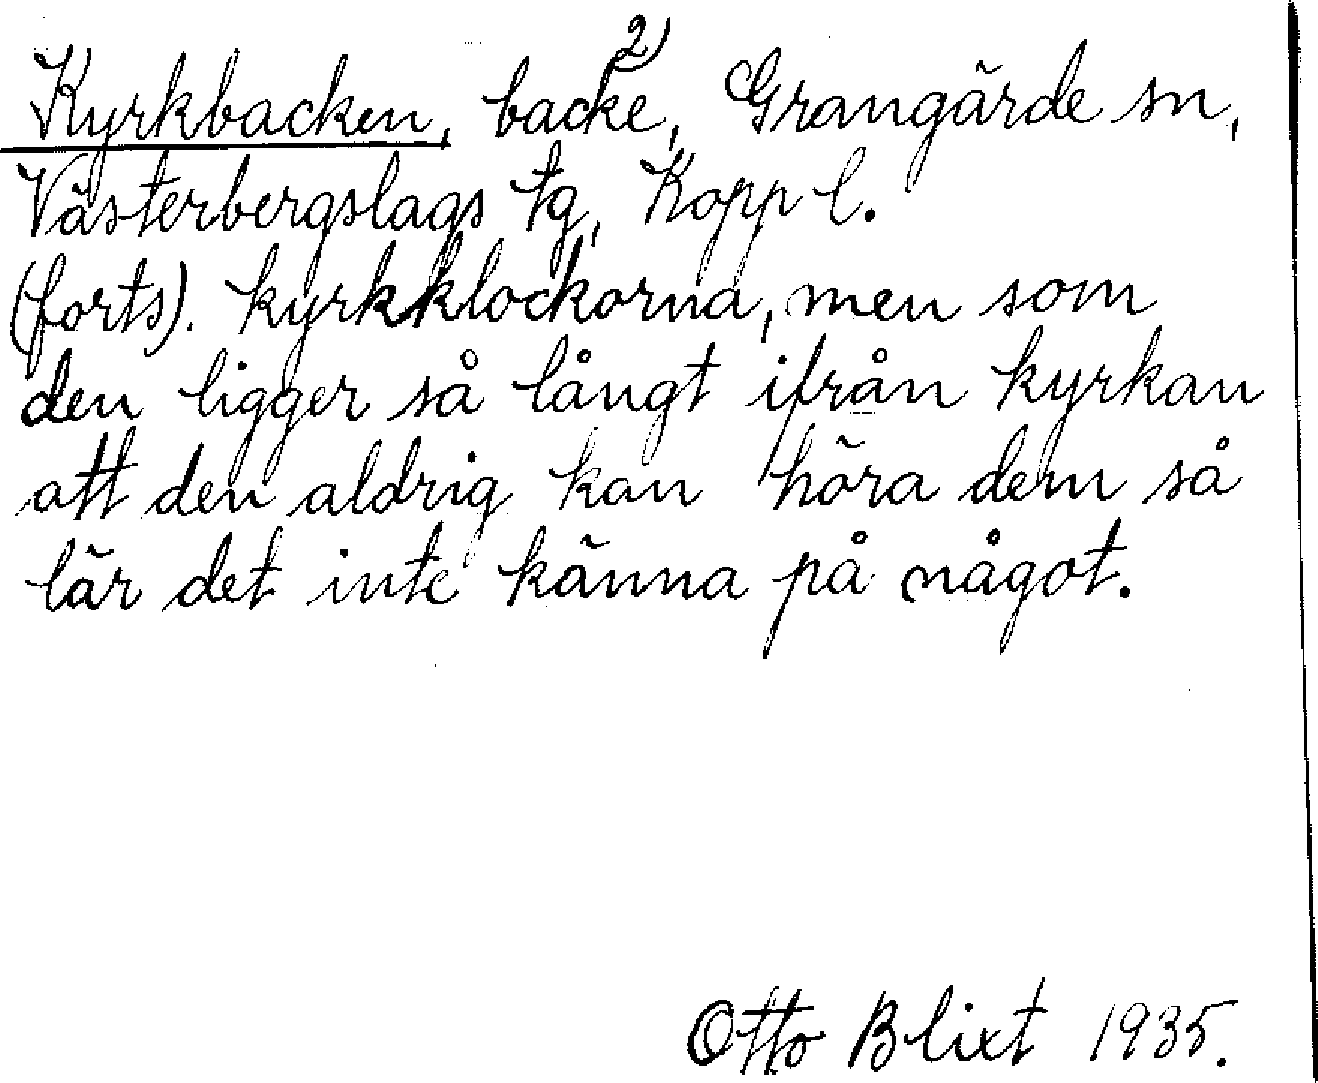 2)
Kyrkbacken, backe, Grangärde sn,
Västerbergslags tg, Kopp l.
(forts). kyrkklockorna, men som
den ligger så långt ifrån kyrkan
att den aldrig kan höra dem så
lär det inte känna på något.
Otto Blixt 1935.